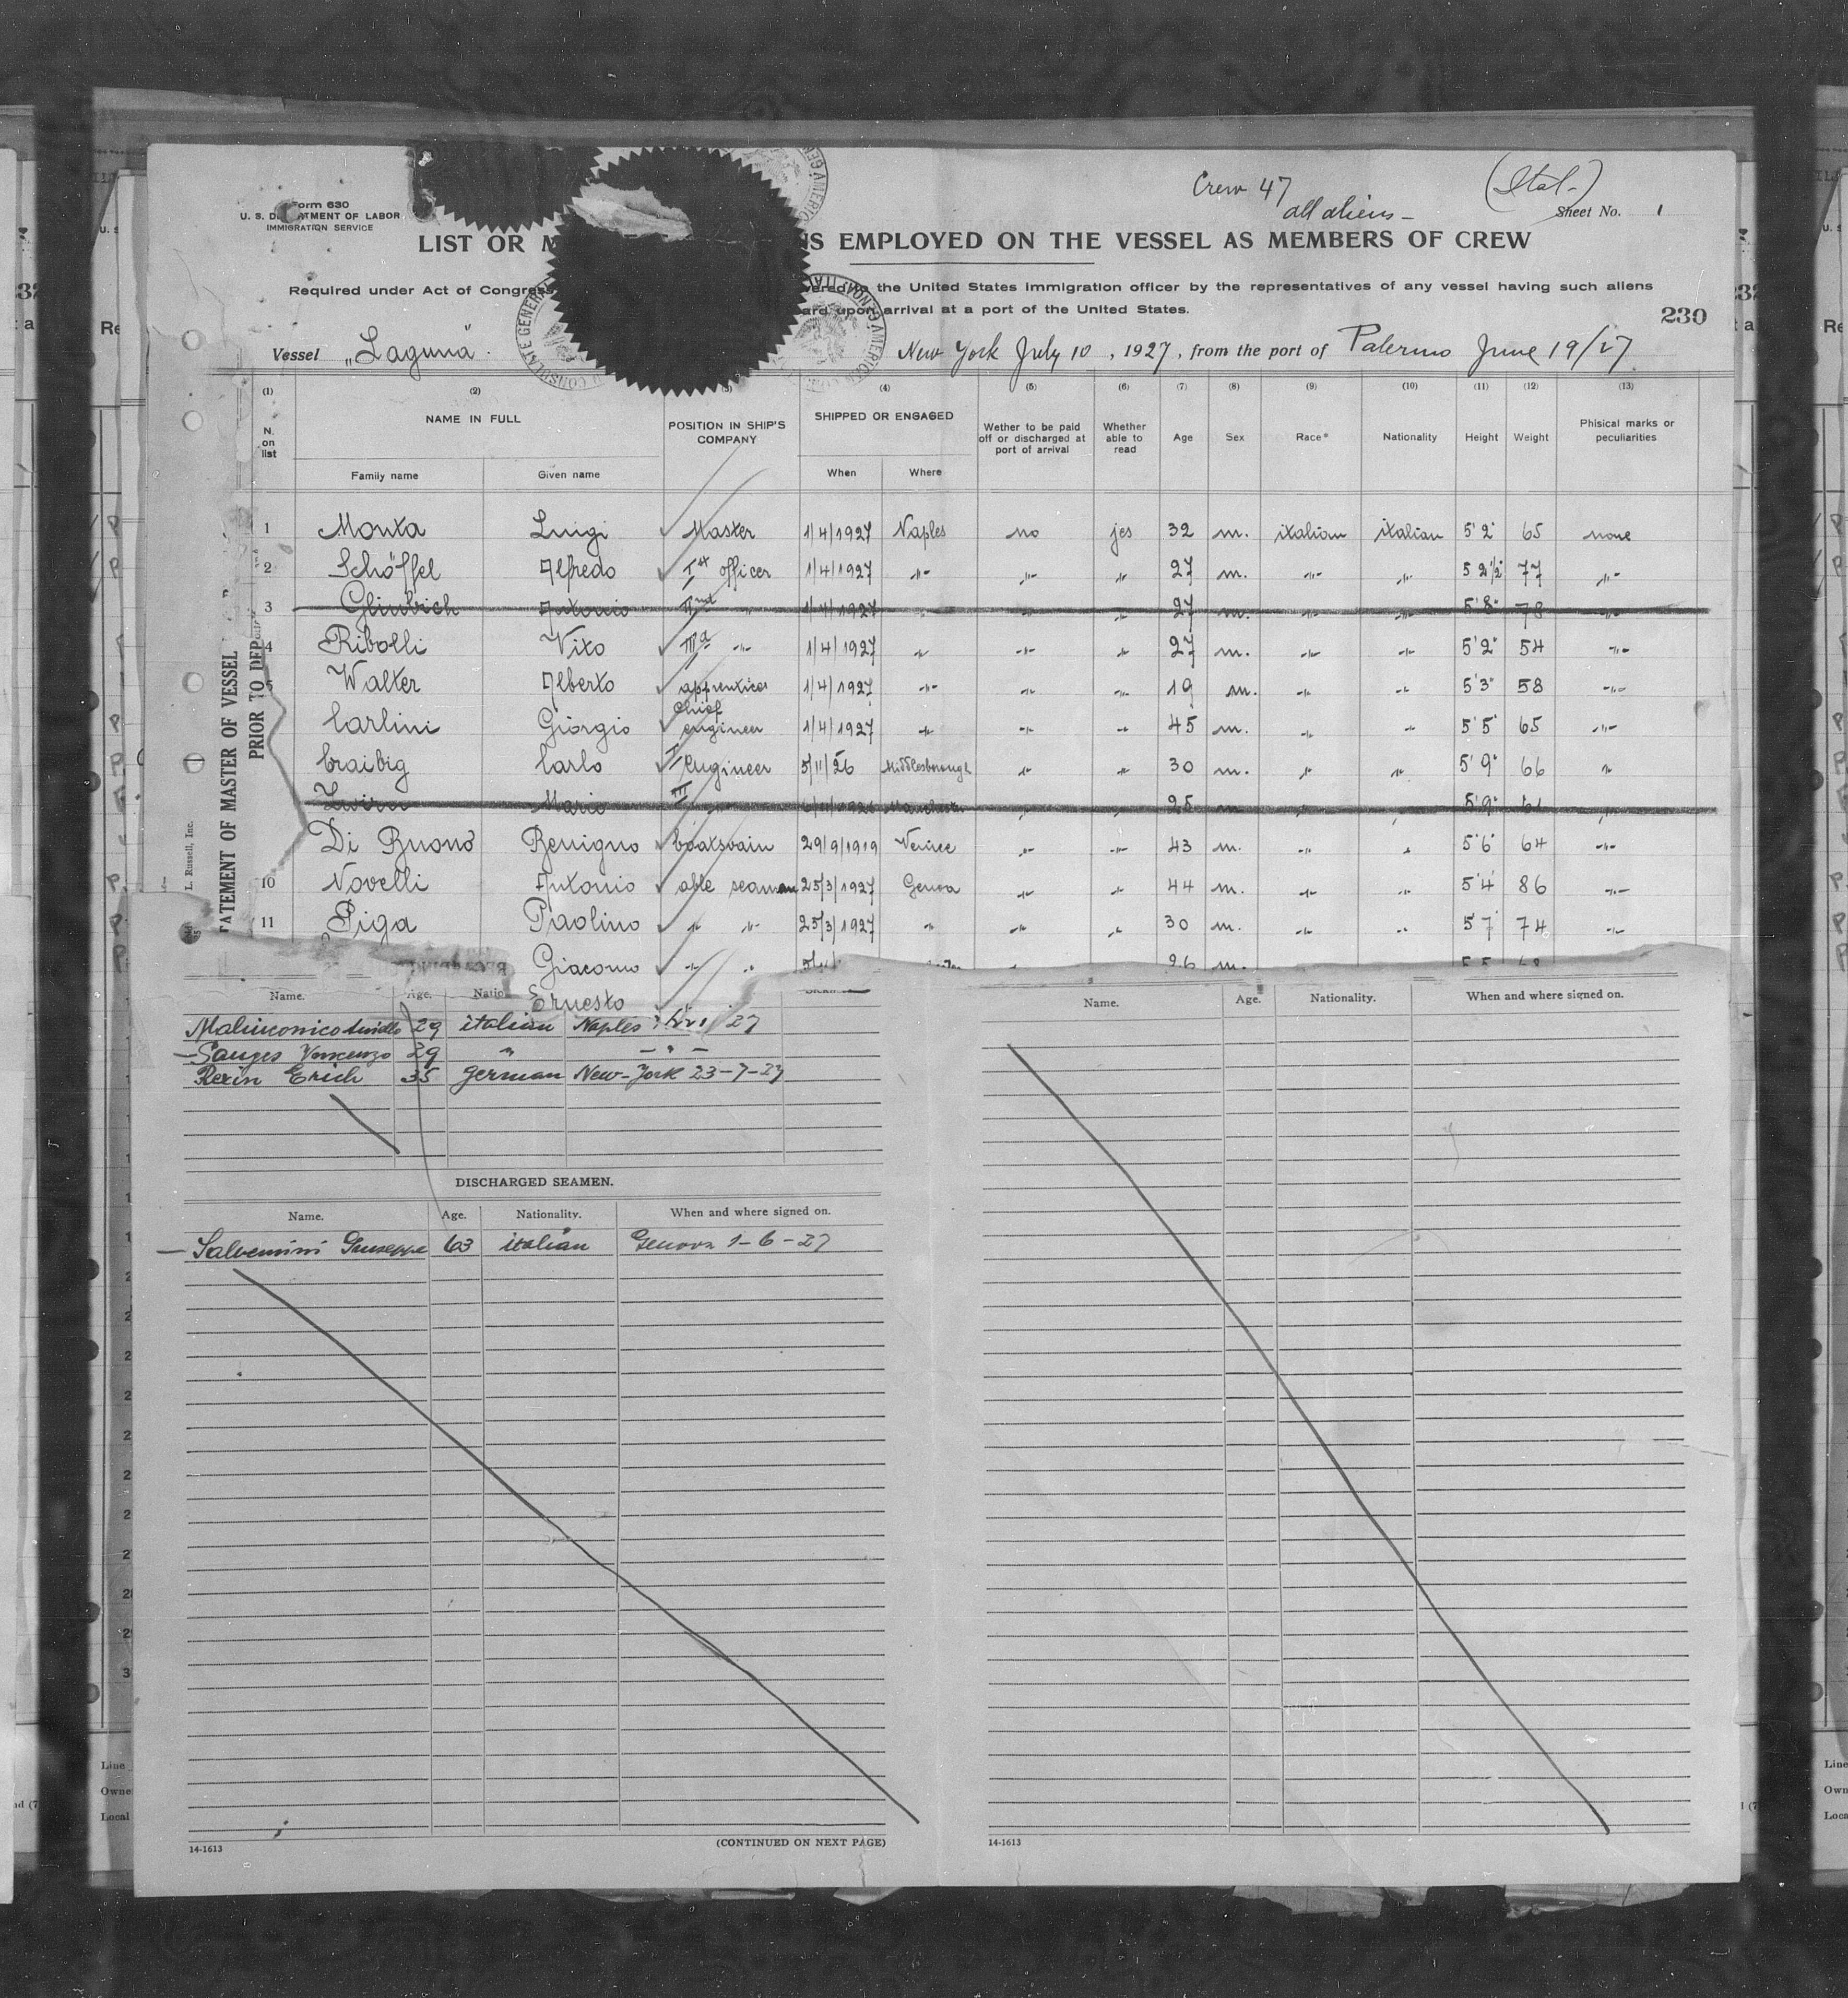 Crew 47
all aliens -
(Ital.)
Form 630
U. S. DE TMENT OF LABOR
IMMIGRATION SERVICE
Sheet No. 1
LIST OR M NS EMPLOYED ON THE VESSEL AS MEMBERS OF CREW
Required under Act of Congress vered to the United States immigration officer by the representatives of any vessel having such aliens
ard upon arrival at a port of the United States.
230
Vessel "Laguna" New York July 10, 1927, from the port of Palermo June 19/27
(1) (2) (3) (4) (5) (6) (7) (8) (9) (10) (11) (12) (13)
N. on list NAME IN FULL POSITION IN SHIP'S COMPANY SHIPPED OR ENGAGED Wether to be paid off or discharged at port of arrival Whether able to read Age Sex Race* Nationality Height Weight Phisical marks or peculiarities
Family name Given name When Where
1 Monta Luigi Master 1/4/1927 Naples no jes 32 m. italian italian 5'2" 65 none
2 Schöffel Alfredo Ist officer 1/4/1927 -"- -"- -"- 27 m. -"- -"- 5 2½" 77 -"-
3 Antonio IInd " 1/4/1927 27 m. 5'8" 78
4 Ribolli Vito IIId -"- 1/4/1927 -"- -"- -"- 27 m. -"- -"- 5'2" 54 -"-
5 Walter Alberto apprentice 1/4/1927 -"- -"- -"- 19 m. -"- -"- 5'3" 58 -"-
Carlini Giorgio chief engineer 1/4/1927 -"- -"- -"- 45 m. -"- -"- 5'5" 65 -"-
Craibig Carlo II engineer 5/11/26 Middlesborough -"- -"- 30 m. -"- -"- 5'9" 66 -"-
Mario III 25 m 5'9" 61
Di Buono Benigno boatswain 29/9/1919 Venice -"- -"- 43 m. -"- -"- 5'6" 64 -"-
10 Novelli Antonio able seaman 25/3/1927 Genoa -"- -"- 44 m. -"- -"- 5'4" 86 -"-
11 Piga Paolino -"- -"- 25/3/1927 -"- -"- -"- 30 m. -"- -"- 5'7" 74 -"-
Giacomo -"- -"- 26 m.
Ernesto
STATEMENT OF MASTER OF VESSEL
PRIOR TO DEP
L. Russell, Inc.
Name. Age. Natio
Malinconico Aniello 29 italian Naples 27
- Sanges Vincenzo 29 " - " -
Rexin Erich 35 german New-York 23-7-27
DISCHARGED SEAMEN.
Name. Age. Nationality. When and where signed on.
- Salvemini Giuseppe 63 italian Genova 1-6-27
14-1613 (CONTINUED ON NEXT PAGE)
Name. Age. Nationality. When and where signed on.
14-1613